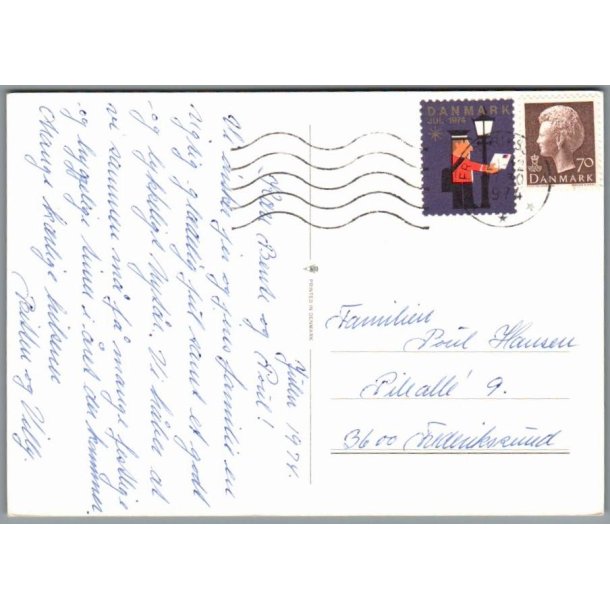 Julen 1974.
Kære Bente og Poul!
Vi ønsker jer og jeres familie en
rigtig glædelig jul samt et godt
og lykkeligt Nytår. Vi håber at
vi sammen må få mange festlige
og hyggelige timer i året der kommer.
Mange kærlige hilsener
og Villy.
DANMARK
JUL 1974
70
DANMARK
PRINTED IN DENMARK
Familien
Poul Hansen
Pileallé 9.
3600 Frederikssund